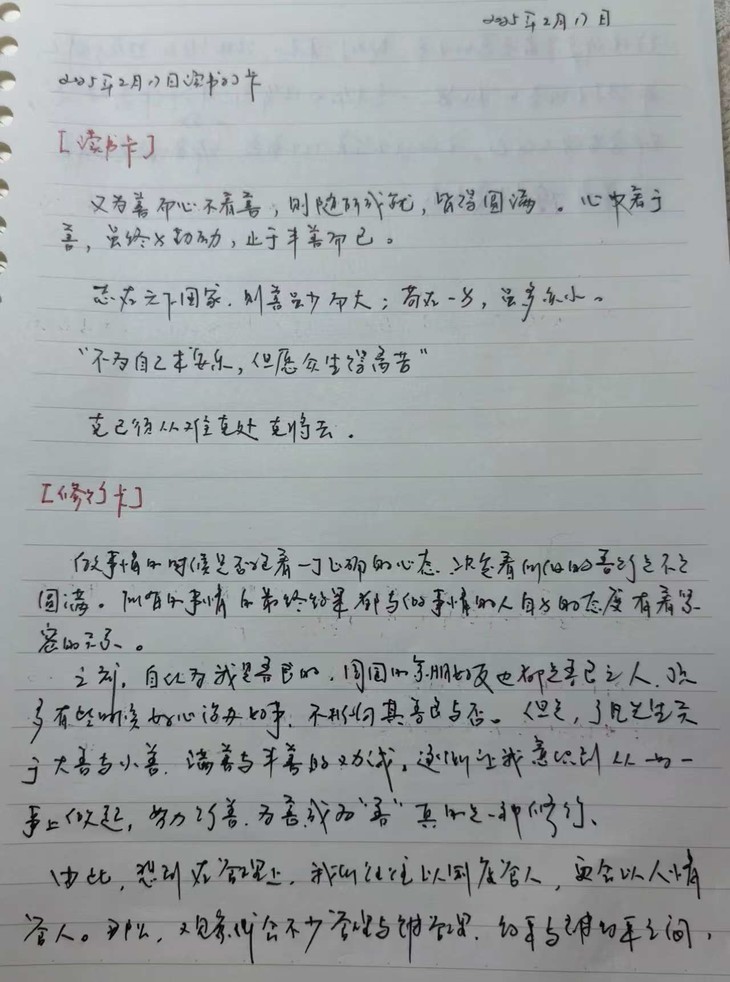 2025年2月17日
2025年2月17日读书卡
[读书卡]
又为善而心不着善，则随所成就，皆得圆满。心中着于
善，虽终身勤励，止于半善而已。
志在天下国家，则善虽少而大；苟在一身，虽多亦小。
"不为自己求安乐，但愿众生得离苦"
克己须从难克处克将去。
[修行卡]
做事情的时候是否有着一个正确的心态，决定着所做的善行是不是
圆满。所有的事情的最终结果都与做事情的人自身的态度有着紧
密的关系。
之前，自认为我是善良的，周围的亲朋好友也都是善良之人，
多有些时候好心没办好事，不 其善良与否。但是，了凡先生关
于大善与小善，满善与半善的 ，这 让我意识到从一
事上做起，努力行善，为善或为"善"真的是一种修行、
由此，想到在管理上，我们往往以制度管人，更会以人情
管人。那么，